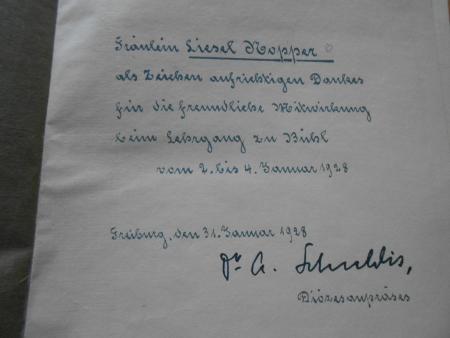 Fräulein Liesel Nopper
als Zeichen aufrichtigen Dankes
für die freundliche Mitwirkung
beim Lehrgang zu Bühl
vom 2. bis 4. Januar 1928
Freiburg, den 31. Januar 1928
Dr. A. Schuldis,
Diözesanpräses